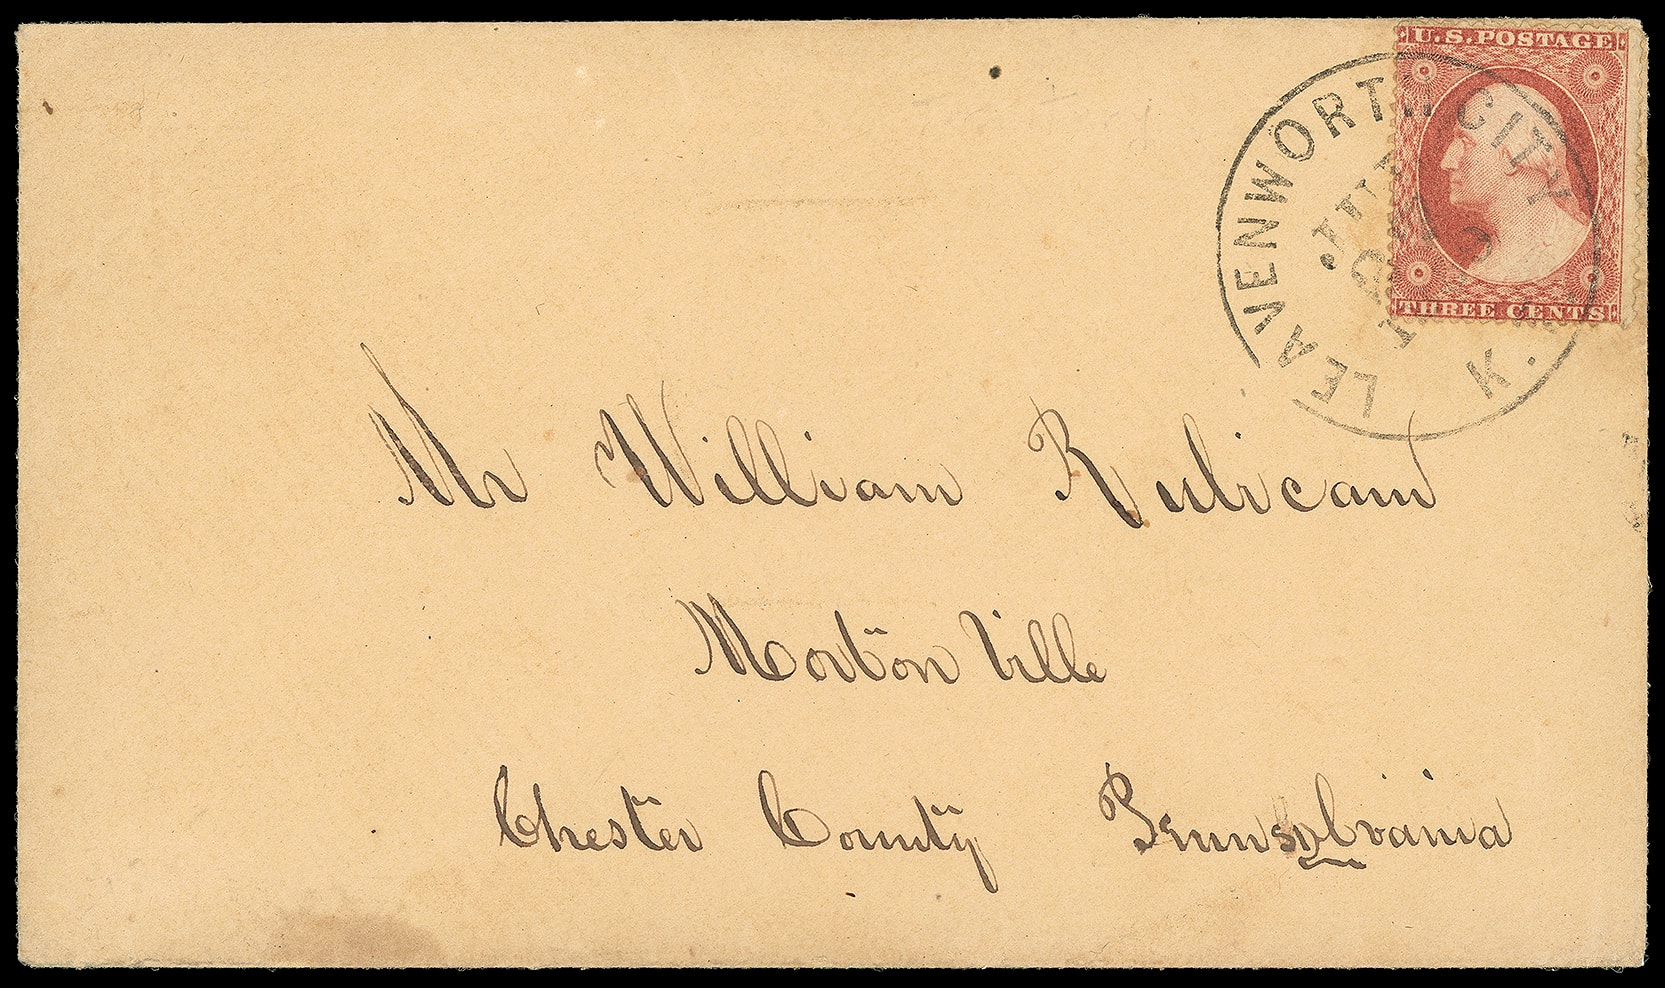 U.S. POSTAGE
THREE CENTS
LEAVENWORTH CITY K.
Mr William Rubicam
Morton Ville
Chester County Pennsylvania